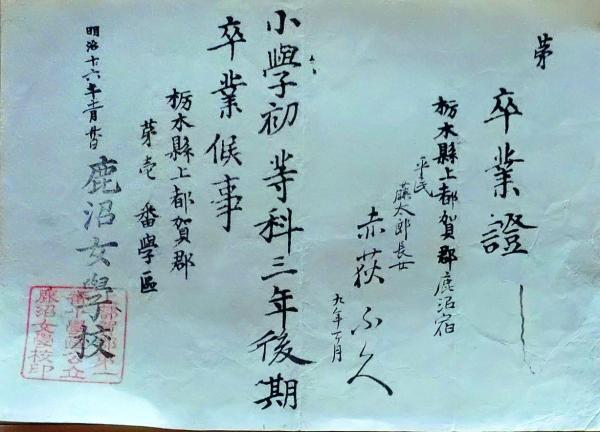 第
卒業證
栃木縣上都賀郡鹿沼宿
平民
藤太郎長女
赤荻ふく
九年
小學初等科三年後期
卒業候事
栃木縣上都賀郡
第壱番學區
明治十六年
鹿沼女學校
鹿沼女學校印